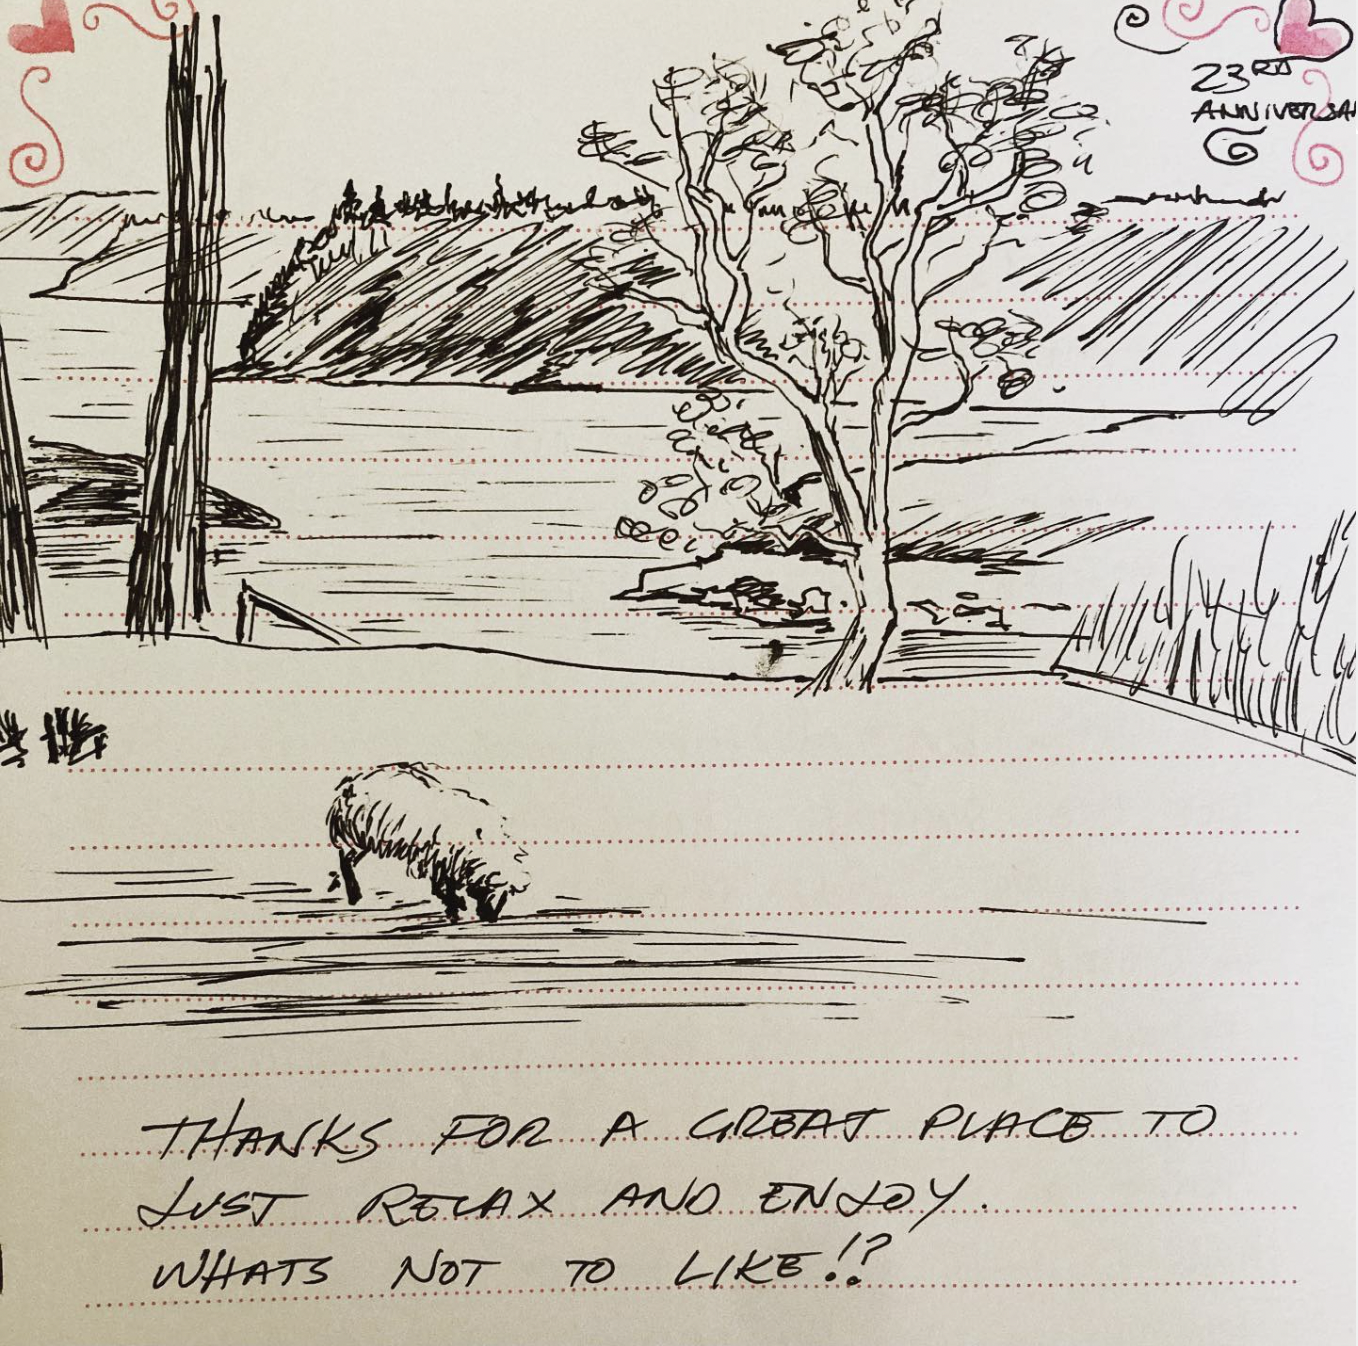 23RD
ANNIVERSA
THANKS FOR A GREAT PLACE TO
JUST RELAX AND ENJOY.
WHATS NOT TO LIKE!?